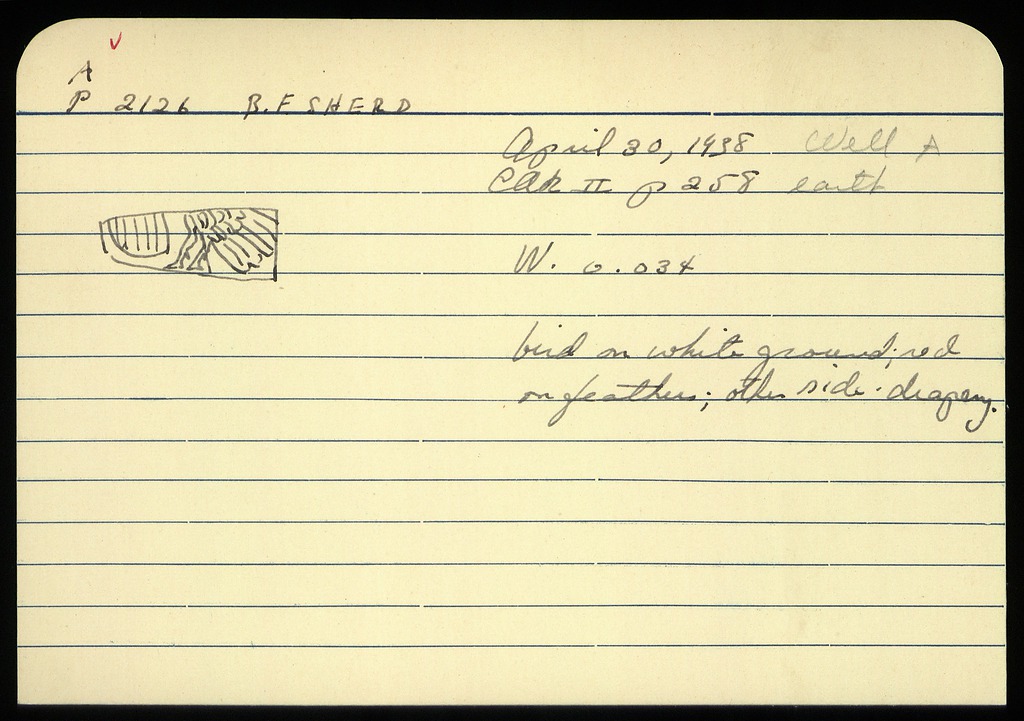 A
P 2126 B.F. SHERD
April 30, 1938 Well A
CAR II p 258 earth
W. 0.034
bird on white ground; red
on feathers; other side. drapery.